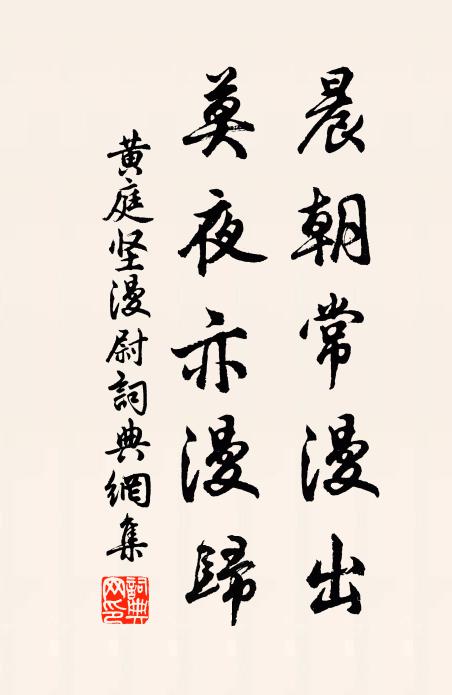 晨朝常漫出
莫夜亦漫歸
黄庭坚漫尉詞典網集
詞典
网印